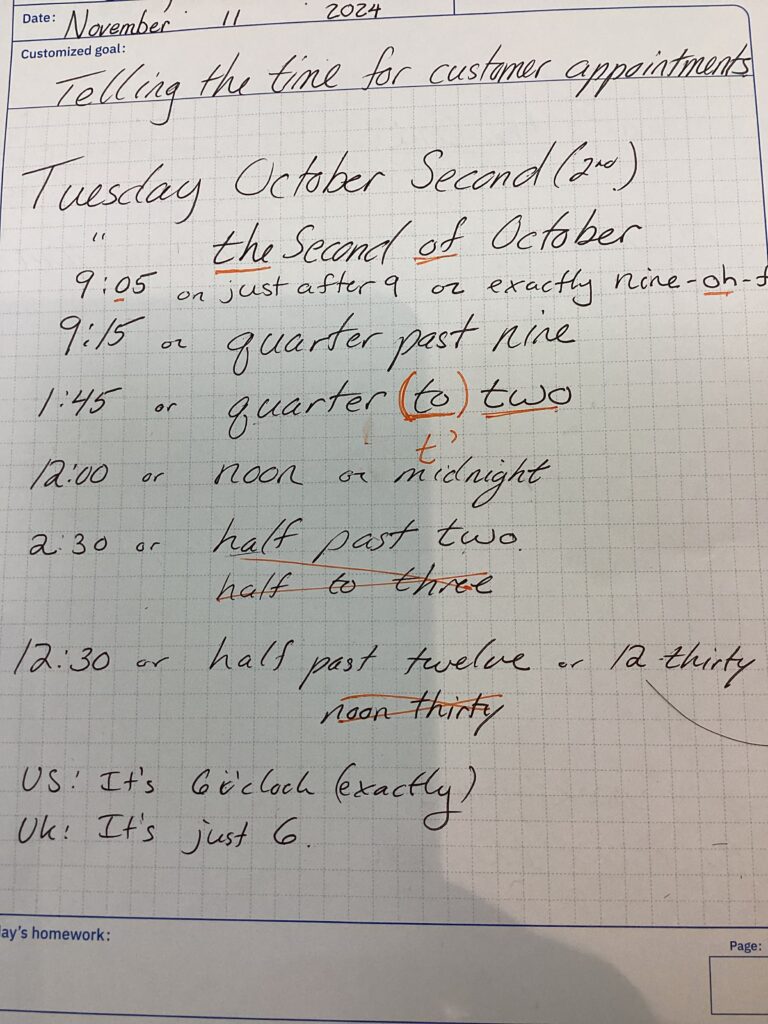 Date: November 11 2024
Customized goal:
Telling the time for customer appointments
Tuesday October Second (2nd)
" the Second of October
9:05 or just after 9 or exactly nine-oh-f
9:15 or quarter past nine
1:45 or quarter (to) two
t'
12:00 or noon or midnight
2:30 or half past two.
half to three
12:30 or half past twelve or 12 thirty
noon thirty
US: It's 6 o'clock (exactly)
UK: It's just 6.
ay's homework:
Page: